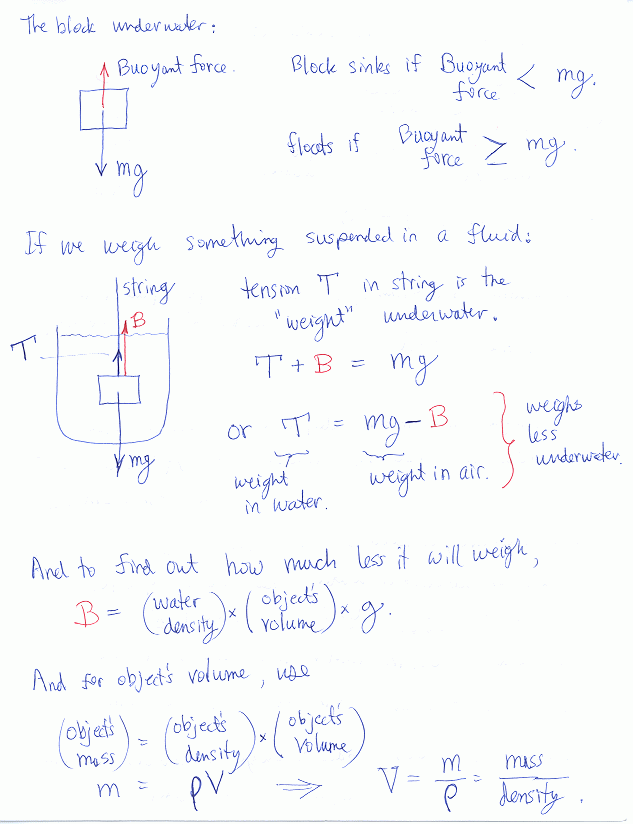 The block underwater:
Buoyant force.
mg
Block sinks if Buoyant force < mg.
floats if Buoyant force ≥ mg.
If we weigh something suspended in a fluid:
string
B
T
mg
tension T in string is the
"weight" underwater.
T + B = mg
or T = mg - B
weight in water.
weight in air.
weighs
less
underwater.
And to find out how much less it will weigh,
B = (water density) × (object's volume) × g.
And for object's volume, use
(object's mass) = (object's density) × (object's volume)
m = ρV ⇒ V = m/ρ = mass/density.